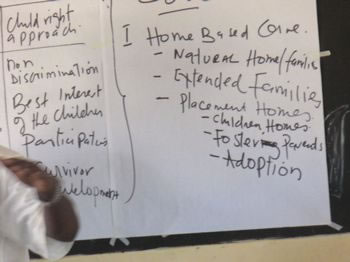 Child right
approach
Non
Discrimination
Best Interest
of the children
Participation
Survivor
Development
I Home Based Care.
- Natural Home/families
- Extended Families
- Placement Homes
- Children Homes
- Foster Parents
- Adoption